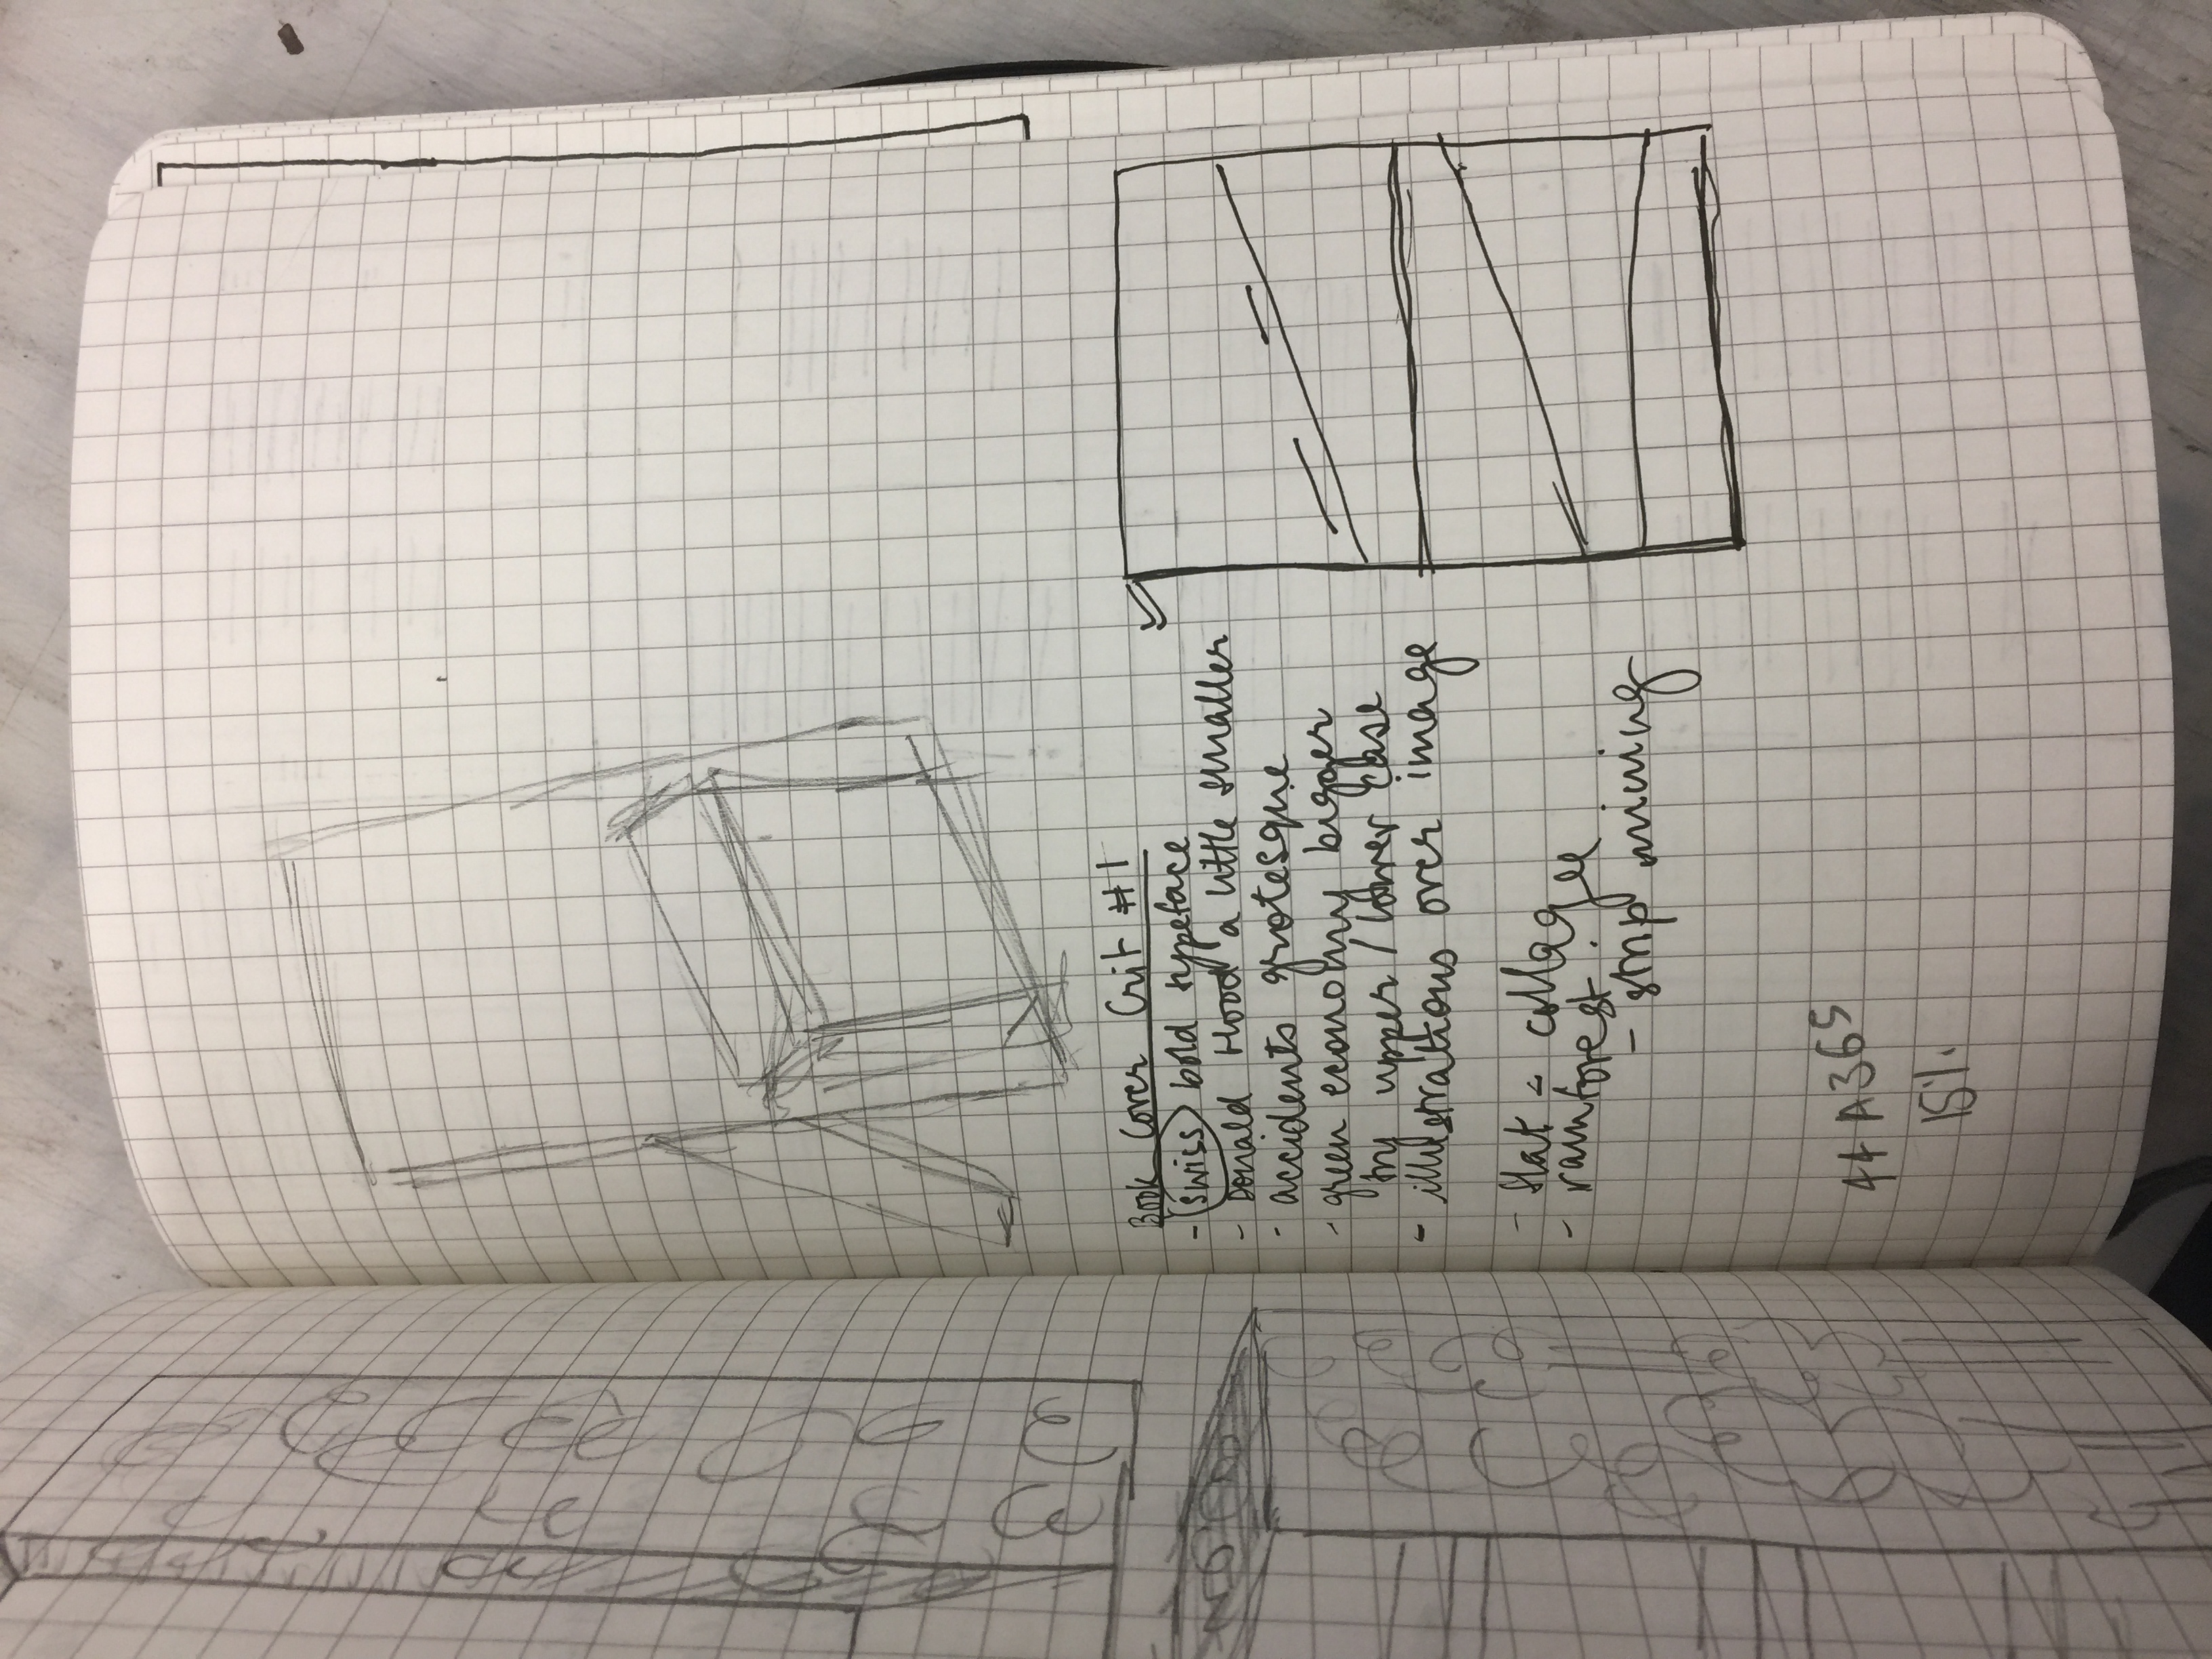 Book Cover Crit #1
- swiss bold typeface
- Donald Hood a little smaller
- accidents grotesque
- green economy bigger
try upper / lower case
- illustrations over image
- flat - collage
- rainforest
- strip mining
44 A365
15%